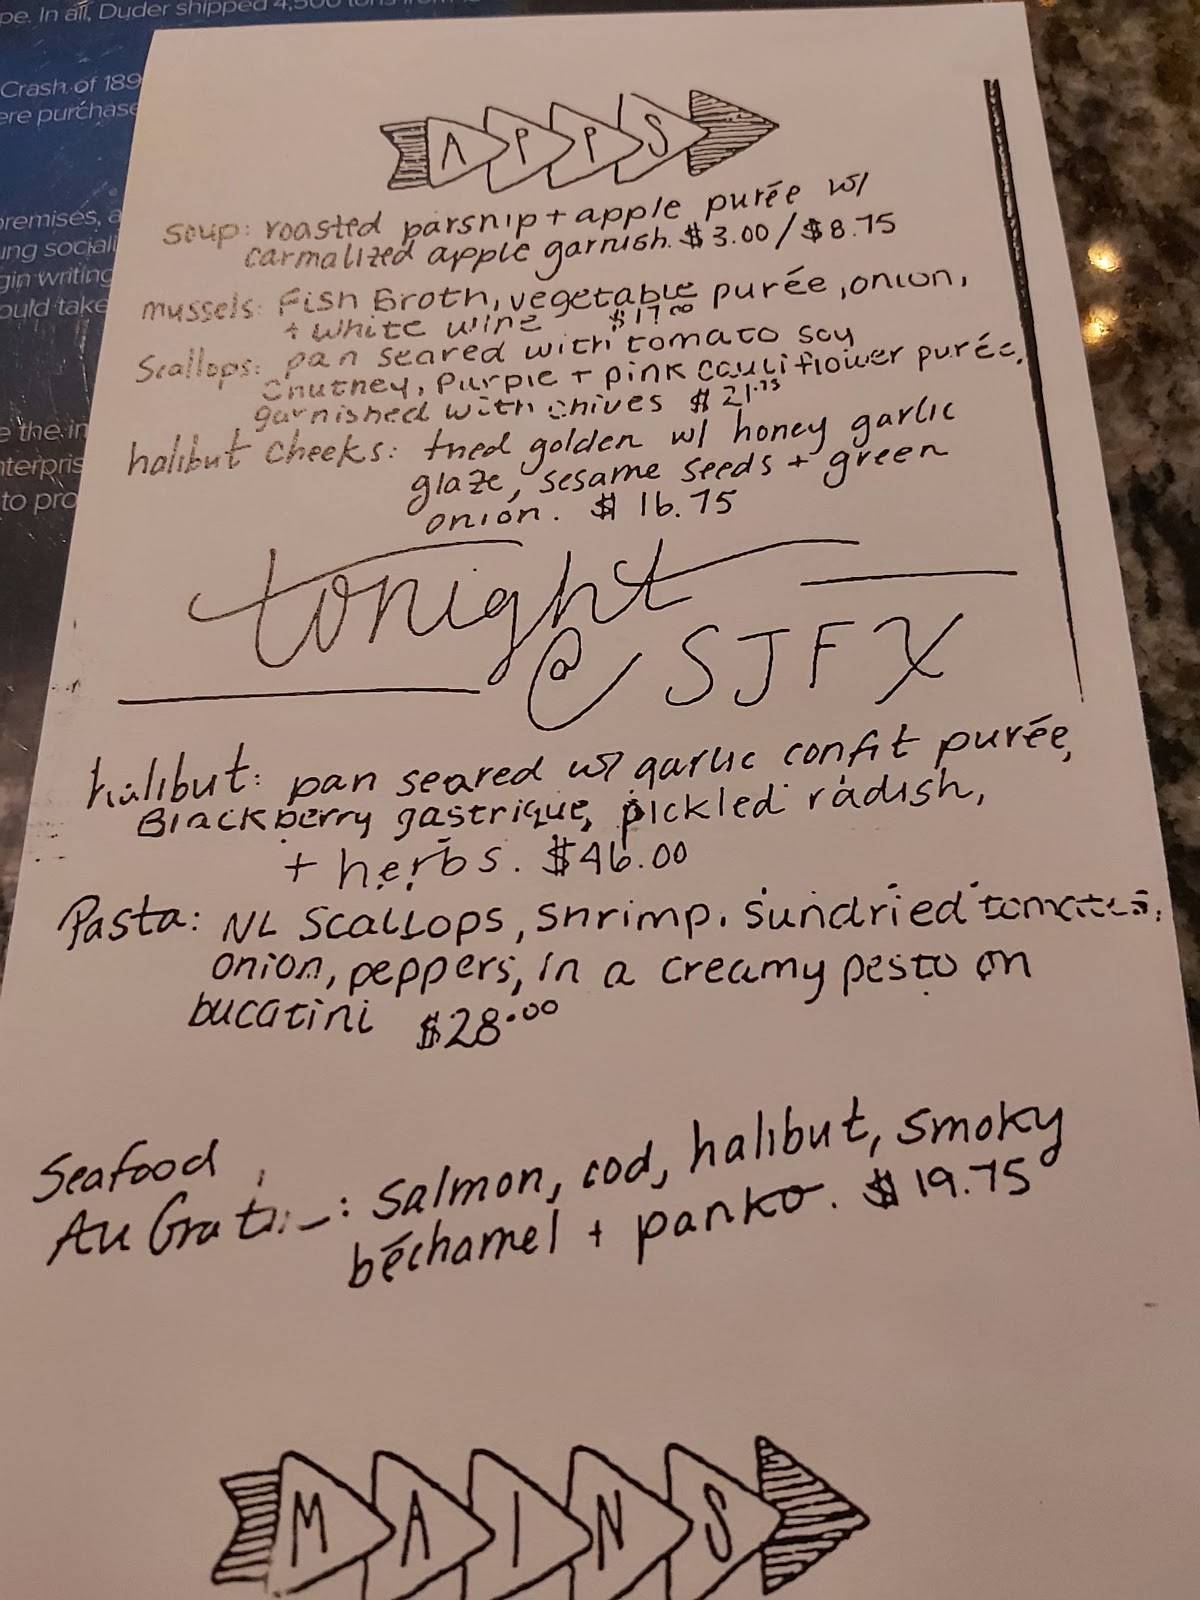 pe. In all, Duder shipped 4,500 tons from
Crash of 189
ere purchase
premises, a
ung sociali
gin writing
ould take
e the in
nterpris
to pro
APPS
Soup: roasted parsnip + apple purée w/
carmalized apple garnish. $3.00/$8.75
mussels: Fish Broth, vegetable purée, onion,
+ white wine $17.00
Scallops: pan seared with tomato soy
Chutney, Purple + pink cauliflower purée,
garnished with chives $21.75
halibut cheeks: fried golden w/ honey garlic
glaze, sesame seeds + green
onion. $16.75
tonight
@ SJFX
halibut: pan seared w/ garlic confit purée,
Blackberry gastrique, pickled radish,
+ herbs. $46.00
Pasta: NL Scallops, shrimp, sundried tomatoes,
onion, peppers, in a creamy pesto on
bucatini $28.00
Seafood
Au Gratin: Salmon, cod, halibut, smoky
béchamel + panko. $19.75
MAINS